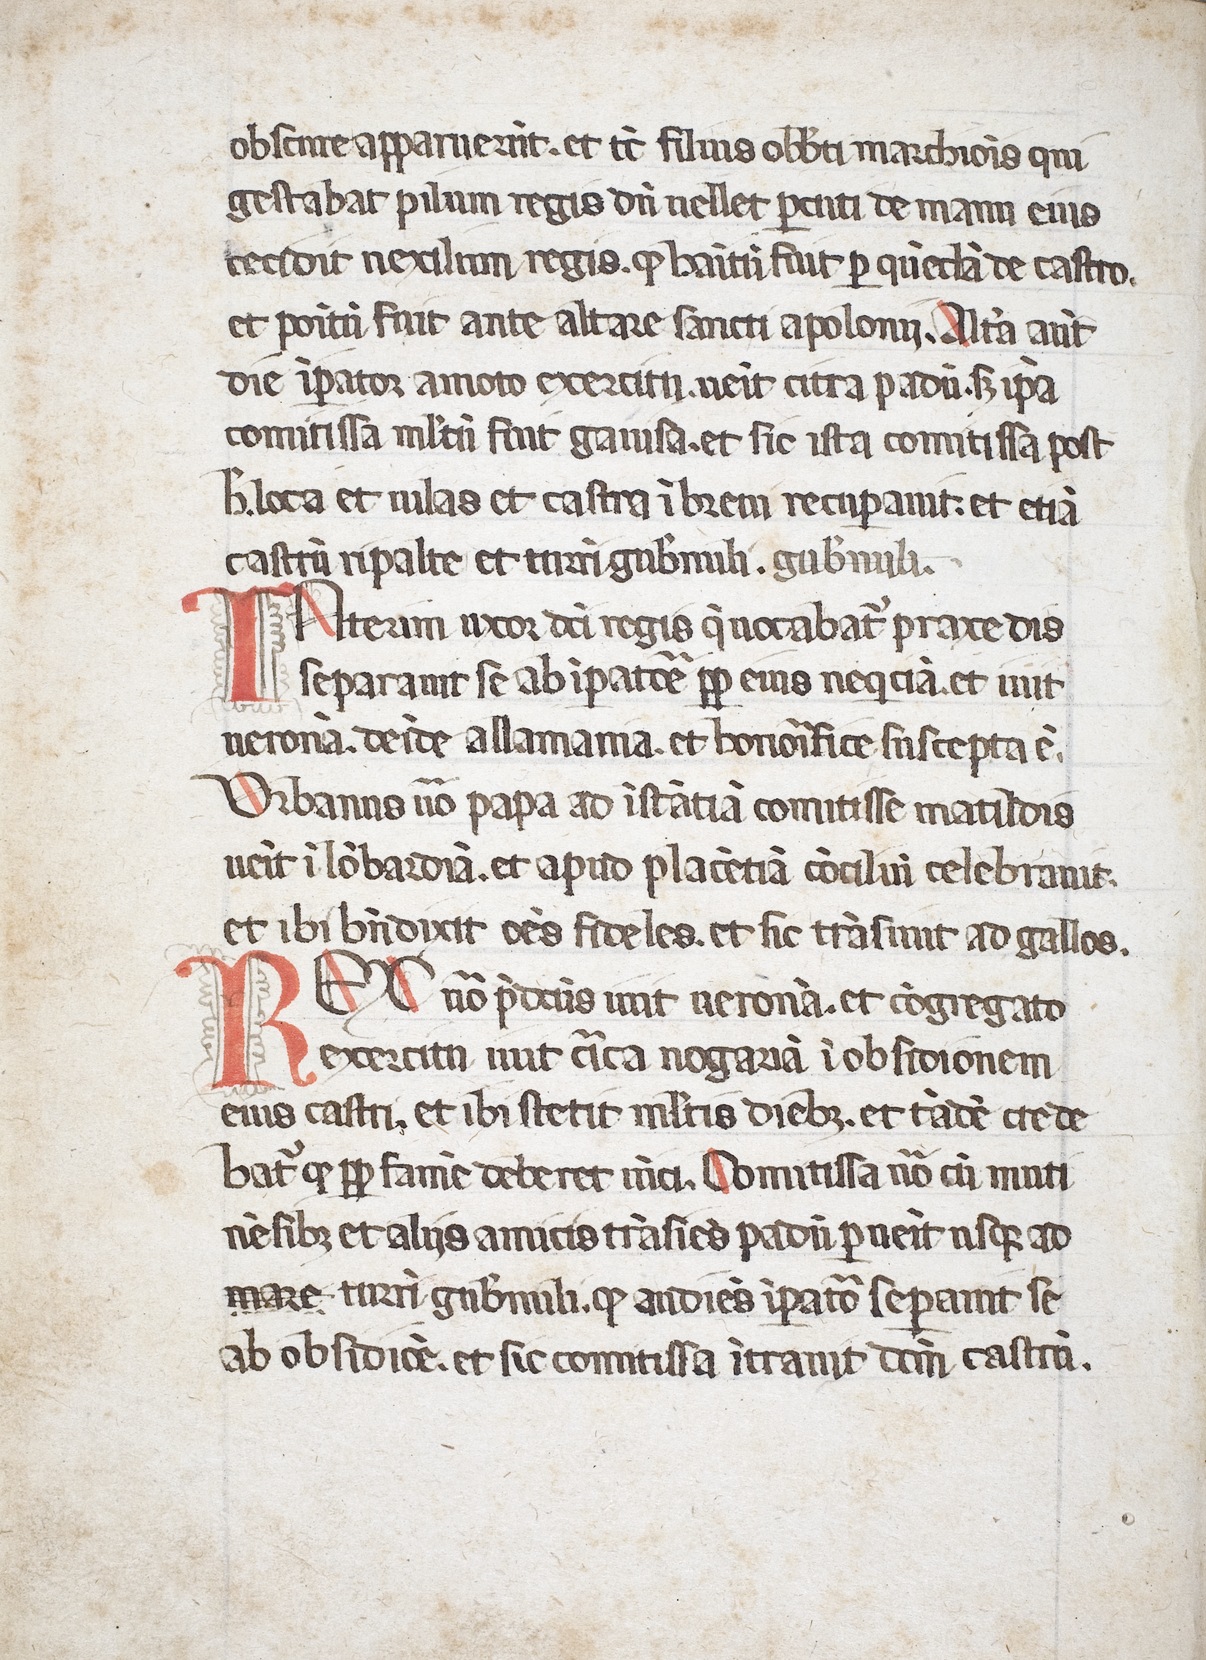 obscure apparuerūt. et tc̄ filius obb̄ti marchiōis qui
gestabat pilum regis dū uellet p̄cuti de manu eius
cecidit uexilum regis. qͦ haītū fuit ꝑ quēdā de castro.
et poītū fuit ante altare sancti apolonij. Alt̓a aūt
die īpator amoto exercitu. ueīt citra padū. sꝫ ip̄a
comitissa ml̓tū fuit gauisa. et sic ista comitissa post
h̄. loca et uilas et castra ī breui recuꝑauit. et etiā
castrū ripalte et turrī gub̓nuli. gub̓nuli.
INterim uxor dc̄i regis q̄ uocabat᷑ praxedis
separauit se ab īpatōe ꝓp eius neqciā. et iuit
ueronā. deīde allamania. et honorīfice suscepta ē.
Vrbanus ūo papa ad īstātiā comitisse matildis
ueīt ī lōbardiā. et apud placētiā cōciliū celebrauit.
et ibi bn̄dixit oēs fideles. et sic trāsiuit ad gallos.
REX ūo p̄dcūs iuit ueronā. et cōgregato
exercitu iuit cīca nogariā ī obsidionem
eius castri, et ibi stetit ml̓tis diebꝫ. et tādē crede
bat᷑ qͦ ꝓp famē deberet uīci. Comitissa ūo cū muti
nēsibꝫ et alijs amicis trāsiēs padū ꝑueīt usqꝫ ad
mare turrī gub̓nuli. qͦ audiēs īpatō seꝑauit se
ab obsidiōe. et sic comitissa ītrauit dcm̄ castrū.